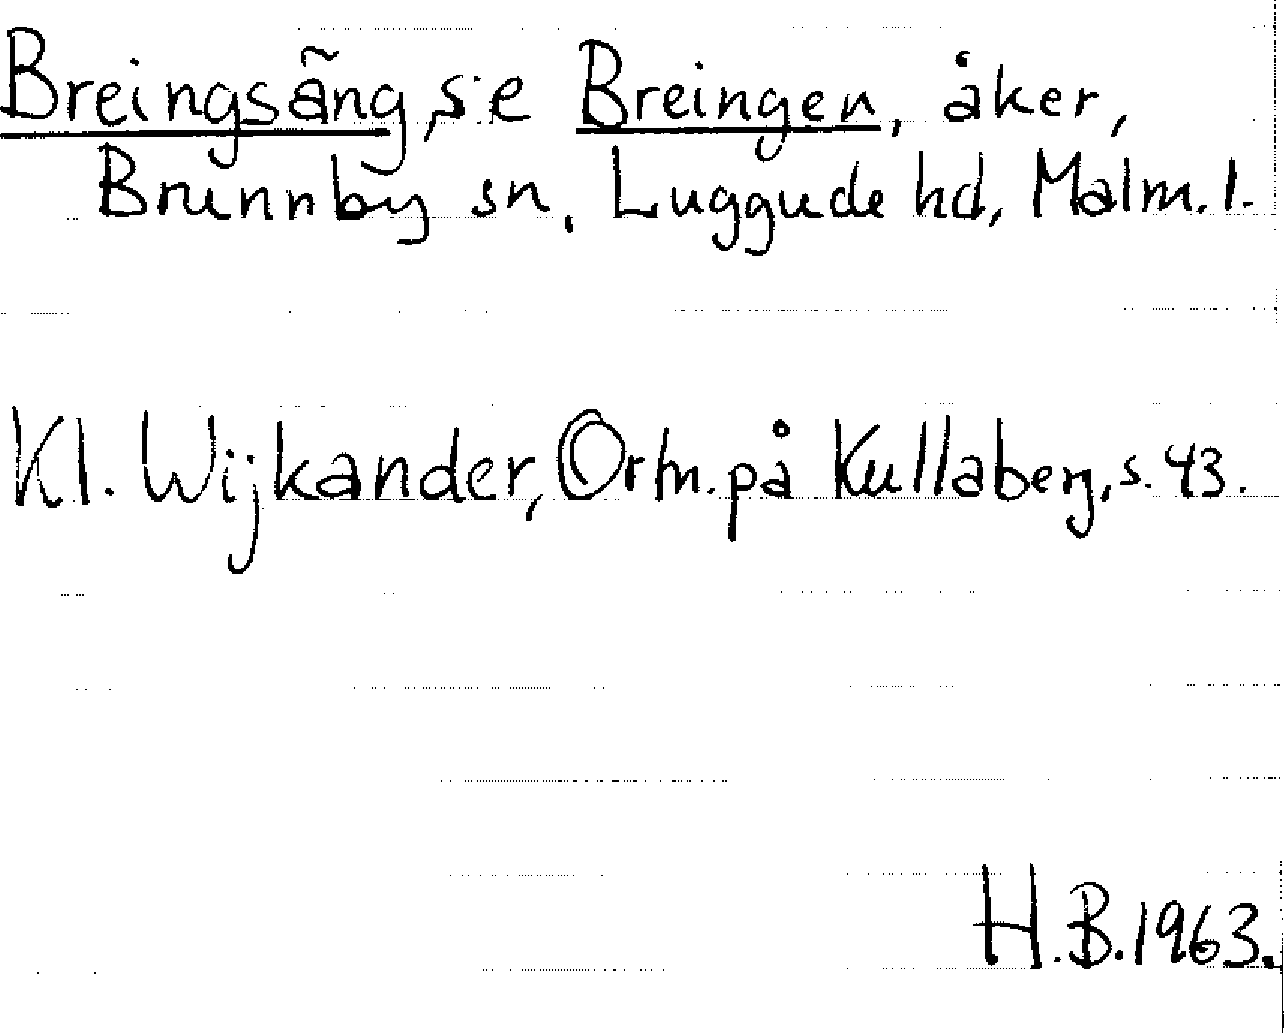 Breingsäng, se Breingen, åker,
Brunnby sn, Luggude hd, Malm. l.
Kl. Wijkander, Ortn. på Kullaberg, s. 43.
H.B. 1963.